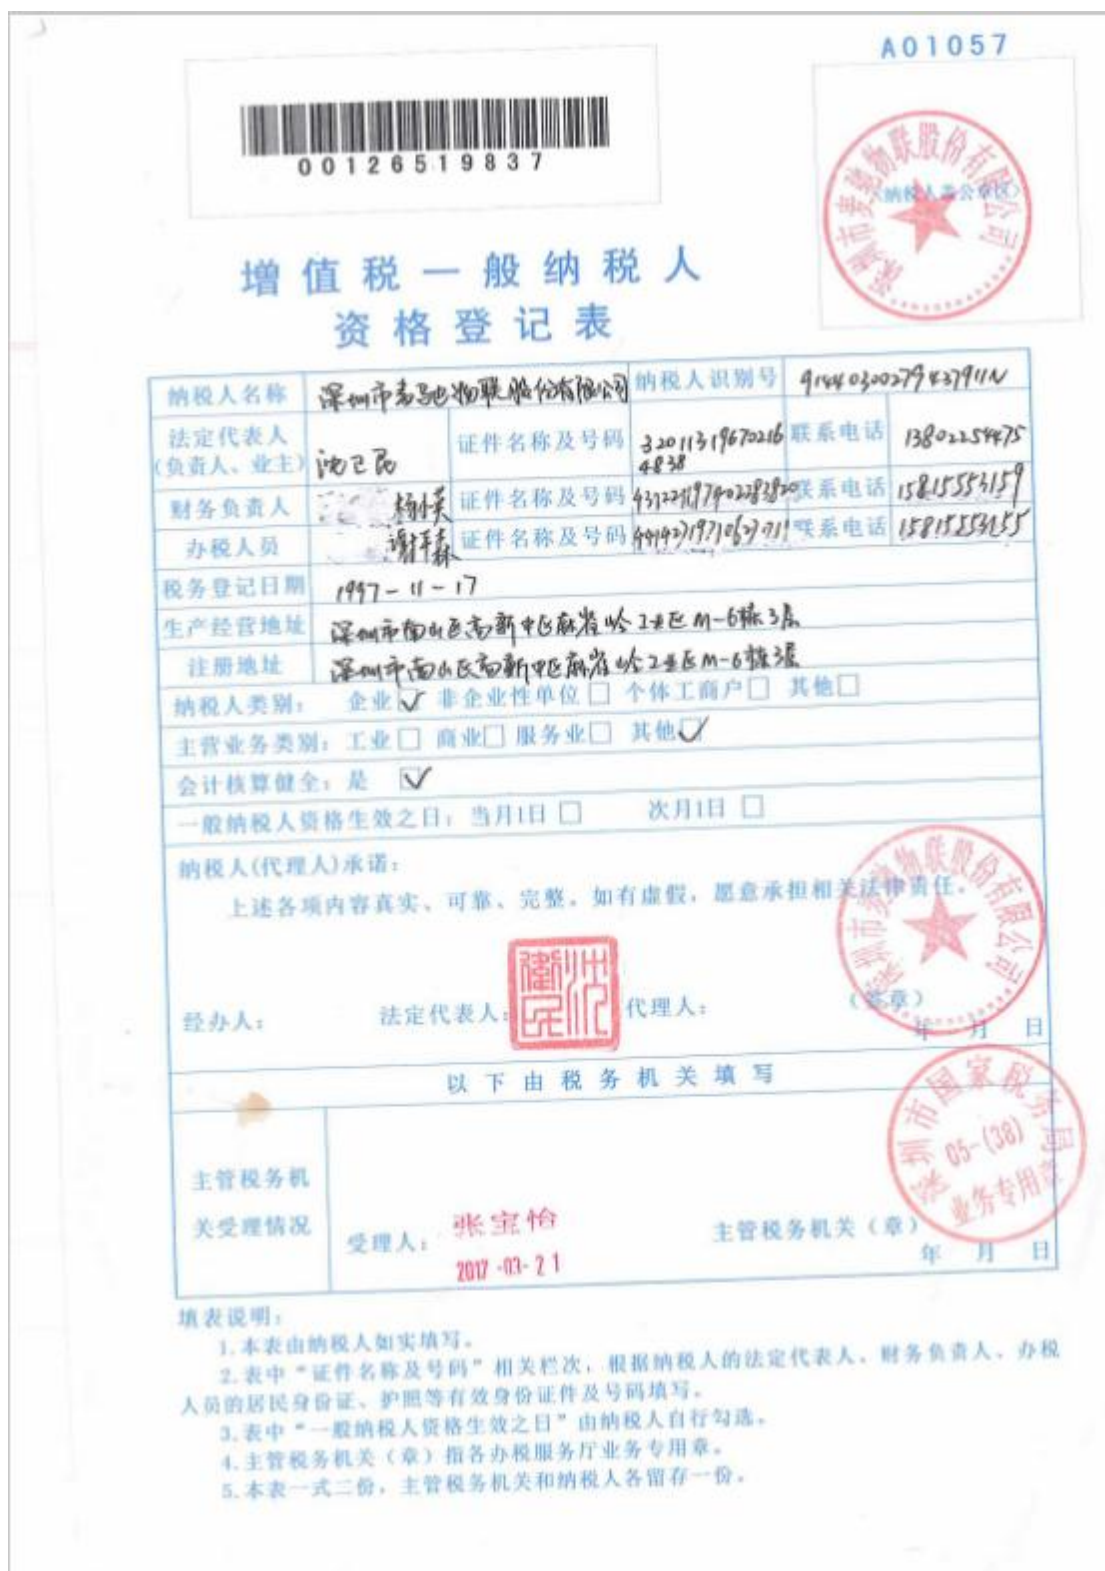 A01057
00126519837
深圳市麦驰物联股份有限公司
(纳税人盖公章区)
增值税一般纳税人
资格登记表
纳税人名称 深圳市麦驰物联股份有限公司 纳税人识别号 91440300279437911N
法定代表人
(负责人、业主) 沈卫民 证件名称及号码 320113196702164838 联系电话 13802254475
财务负责人 证件名称及号码 联系电话 15815553159
办税人员 证件名称及号码 联系电话 15815553155
税务登记日期 1997-11-17
生产经营地址 深圳市南山区高新中区麻雀岭工业区M-6栋3层
注册地址 深圳市南山区高新中区麻雀岭工业区M-6栋3层
纳税人类别: 企业 ☑ 非企业性单位 □ 个体工商户 □ 其他 □
主营业务类别: 工业 □ 商业 □ 服务业 □ 其他 ☑
会计核算健全: 是 ☑
一般纳税人资格生效之日: 当月1日 □ 次月1日 □
纳税人(代理人)承诺:
上述各项内容真实、可靠、完整。如有虚假,愿意承担相关法律责任。
深圳市麦驰物联股份有限公司
经办人: 法定代表人: 沈衛民 代理人: (签章)
年 月 日
以下由税务机关填写
深圳市国家税务局
05-(38)
业务专用章
主管税务机
关受理情况
受理人: 张宝怡 主管税务机关(章)
2017-03-21 年 月 日
填表说明:
1.本表由纳税人如实填写。
2.表中“证件名称及号码”相关栏次,根据纳税人的法定代表人、财务负责人、办税
人员的居民身份证、护照等有效身份证件及号码填写。
3.表中“一般纳税人资格生效之日”由纳税人自行勾选。
4.主管税务机关(章)指各办税服务厅业务专用章。
5.本表一式二份,主管税务机关和纳税人各留存一份。